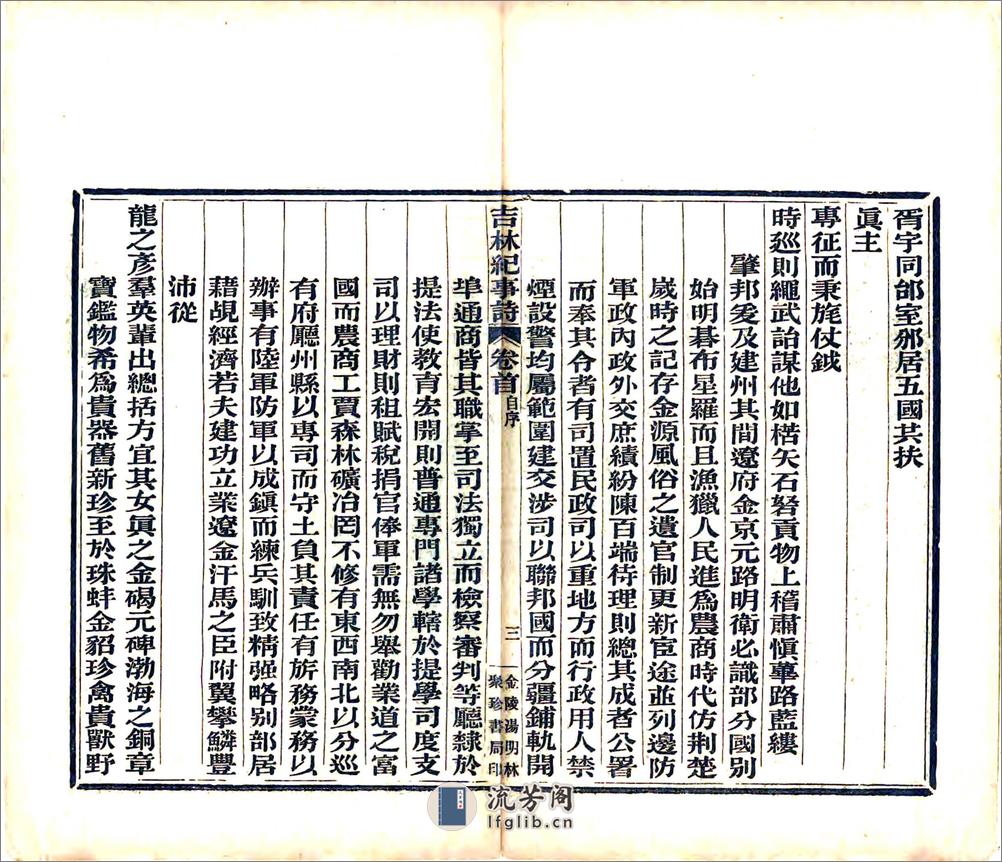 胥宇同邰室郱居五國共扶
眞主
專征而秉旄仗鉞
時廵則繩武詒謀他如楛矢石砮貢物上稽肅愼篳路藍縷
肇邦爰及建州其間遼府金京元路明衞必識部分國別
始明碁布星羅而且漁獵人民進爲農商時代仿荆楚
嵗時之記存金源風俗之遺官制更新宦途並列邊防
軍政內政外交庶績紛陳百端待理則總其成者公署
而奉其令者有司置民政司以重地方而行政用人禁
煙設警均屬範圍建交涉司以聯邦國而分疆鋪軌開
吉林紀事詩 卷首 自序 三 金陵湯明林聚珍書局印
埠通商皆其職掌至司法獨立而檢察審判等廳隸於
提法使教育宏開則普通專門諸學轄於提學司度支
司以理財則租賦稅捐官俸軍需無勿舉勸業道之富
國而農商工賈森林礦冶罔不修有東西南北以分巡
有府廳州縣以專司而守土負其責任有旂務蒙務以
辦事有陸軍防軍以成鎭而練兵馴致精强略别部居
藉覘經濟若夫建功立業遼金汗馬之臣附翼攀鱗豐
沛從
龍之彥羣英輩出總括方宜其女眞之金碣元碑渤海之銅章
寶鑑物希爲貴器舊新珍至於珠蚌金貂珍禽貴獸野
流芳阁
lfglib.cn